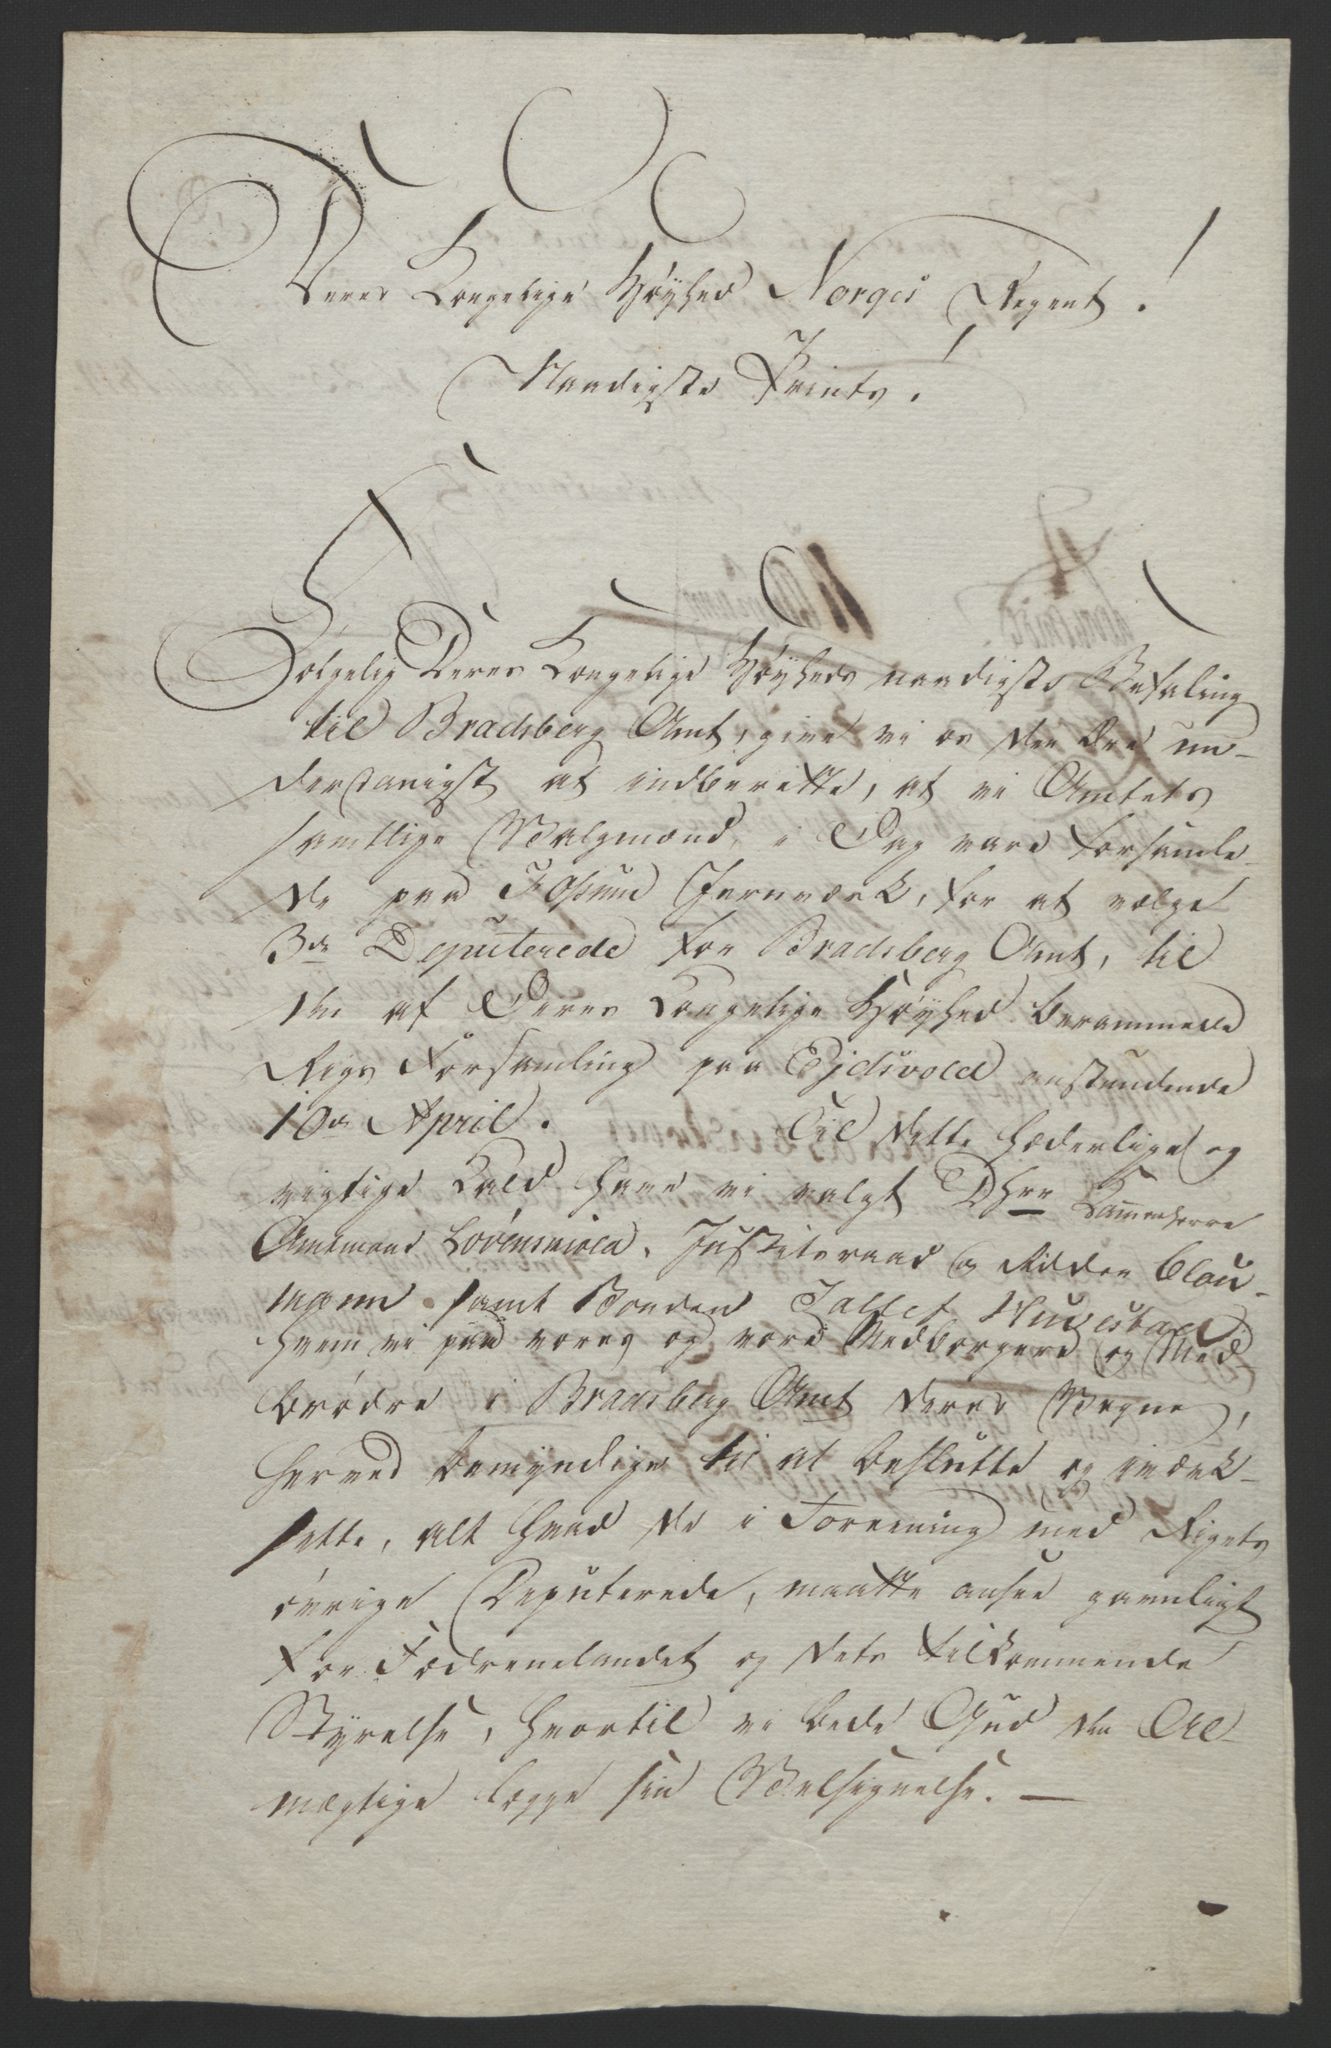 Deres Kongelige Høyhed Norges Regent!
Naadigste Prints!
Følgelig Deres Kongelige Høyheds naadigste Befaling
til Bradsberg Amt, give vi os den Ære un-
derdanigst at indberette, at vi Amtets
samtlige Valgmænd, i Dag vare forsamle-
de paa Fossum Jernværk, for at vælge
3de Deputerede for Bradsberg Amt, til
den af Deres Kongelige Høyhed berammede
Rigs Forsamling paa Ejdsvold anstundende
10de April. Til dette hæderlige og
vigtige Kald have vi valgt DHrr Kammerherre
Amtmand Lövenskiold, Justitsraad og Ridder Clou-
mann samt Bonden Tallef Huvestad
hvem vi paa vores og vore Medborgere og Med
brødre i Bradsberg Amt deres Vegne,
herved bemyndige til at beslutte og iværk-
sette, alt hvad de i Foreening med Rigets
övrige Deputerede, maatte ansee gavnligt
for Fædrenelandet og dets tilkommende
Styrelse, hvortil vi bede Gud den Al-
mægtige lægge sin Velsignelse. —